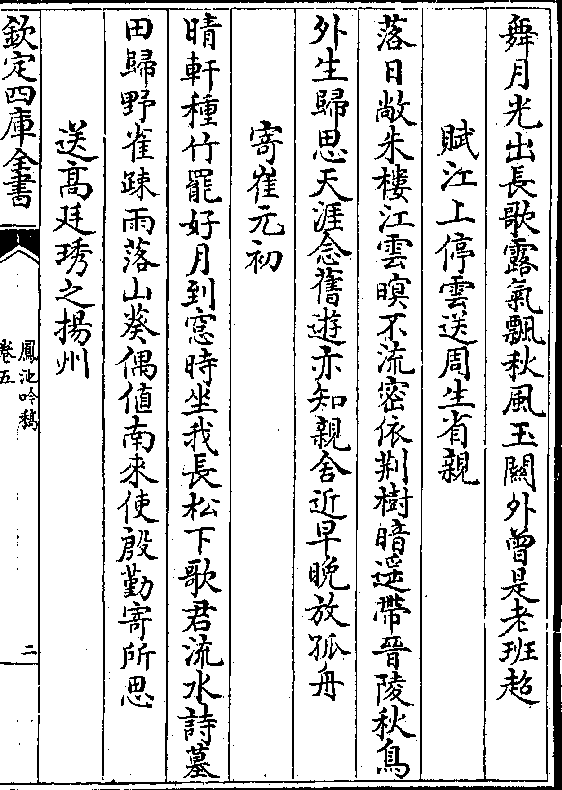 舞月光出長歌露氣飄秋風玉關外曾是老班超
賦江上停雲送周生省親
落日敞朱樓江雲暝不流密依荆樹暗遥帶晉陵秋鳥
外生歸思天涯念舊遊亦知親舍近早晚放孤舟
寄崔元初
晴軒種竹罷好月到窓時坐我長松下歌君流水詩墓
田歸野雀疎雨落山葵偶値南來使殷勤寄所思
送高廷琇之揚州
欽定四庫全書
鳳池吟稿
卷五
二